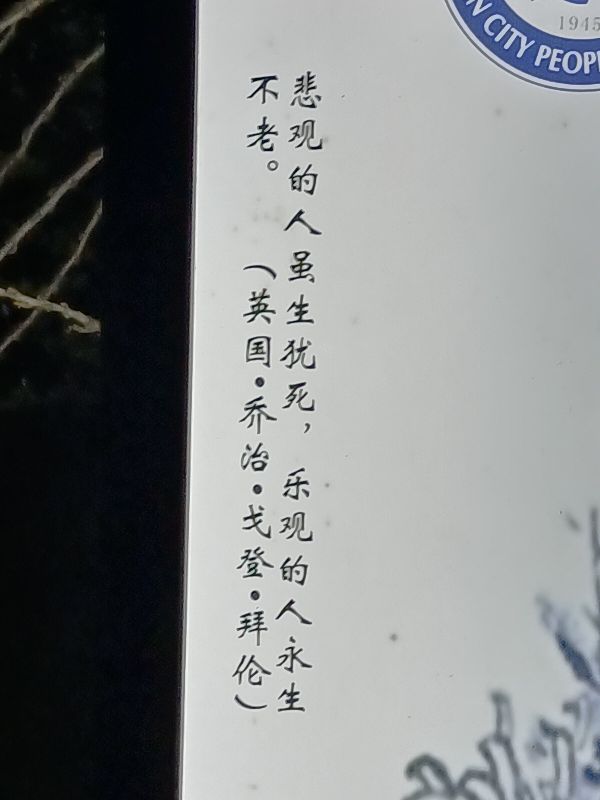 悲观的人虽生犹死，乐观的人永生
不老。（英国·乔治·戈登·拜伦）
1945
CITY PEOP